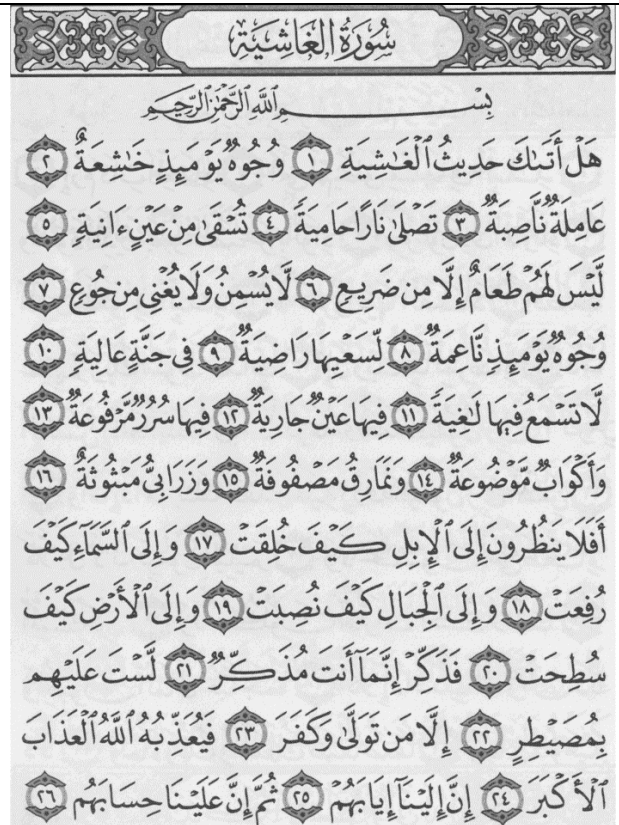 سُورَةُ الْغَاشِيَةِ
بِسْمِ اللَّهِ الرَّحْمَٰنِ الرَّحِيمِ
هَلْ أَتَىٰكَ حَدِيثُ ٱلْغَٰشِيَةِ ١ وُجُوهٌ يَوْمَئِذٍ خَٰشِعَةٌ ٢
عَامِلَةٌ نَّاصِبَةٌ ٣ تَصْلَىٰ نَارًا حَامِيَةً ٤ تُسْقَىٰ مِنْ عَيْنٍ ءَانِيَةٍ ٥
لَّيْسَ لَهُمْ طَعَامٌ إِلَّا مِن ضَرِيعٍ ٦ لَّا يُسْمِنُ وَلَا يُغْنِى مِن جُوعٍ ٧
وُجُوهٌ يَوْمَئِذٍ نَّاعِمَةٌ ٨ لِّسَعْيِهَا رَاضِيَةٌ ٩ فِى جَنَّةٍ عَالِيَةٍ ١٠
لَّا تَسْمَعُ فِيهَا لَٰغِيَةً ١١ فِيهَا عَيْنٌ جَارِيَةٌ ١٢ فِيهَا سُرُرٌ مَّرْفُوعَةٌ ١٣
وَأَكْوَابٌ مَّوْضُوعَةٌ ١٤ وَنَمَارِقُ مَصْفُوفَةٌ ١٥ وَزَرَابِىُّ مَبْثُوثَةٌ ١٦
أَفَلَا يَنظُرُونَ إِلَى ٱلْإِبِلِ كَيْفَ خُلِقَتْ ١٧ وَإِلَى ٱلسَّمَآءِ كَيْفَ
رُفِعَتْ ١٨ وَإِلَى ٱلْجِبَالِ كَيْفَ نُصِبَتْ ١٩ وَإِلَى ٱلْأَرْضِ كَيْفَ
سُطِحَتْ ٢٠ فَذَكِّرْ إِنَّمَآ أَنتَ مُذَكِّرٌ ٢١ لَّسْتَ عَلَيْهِم
بِمُصَيْطِرٍ ٢٢ إِلَّا مَن تَوَلَّىٰ وَكَفَرَ ٢٣ فَيُعَذِّبُهُ ٱللَّهُ ٱلْعَذَابَ
ٱلْأَكْبَرَ ٢٤ إِنَّ إِلَيْنَآ إِيَابَهُمْ ٢٥ ثُمَّ إِنَّ عَلَيْنَا حِسَابَهُم ٢٦